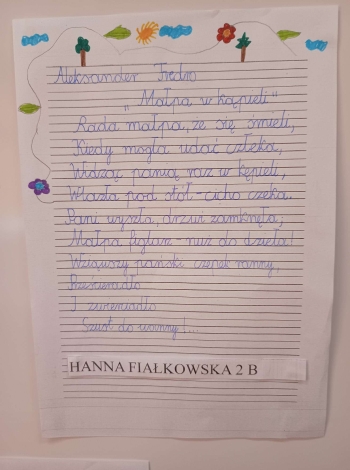 Aleksander Fredro
„Małpa w kąpieli"
Rada małpa, że się śmieli,
Kiedy mogła udać człeka,
Widząc panią raz w kąpieli,
Wlazła pod stół - cicho czeka.
Pani wyszła, drzwi zamknęła;
Małpa figlarz - nuż do dzieła!
Wziąwszy pański czepek ranny,
Prześcieradło
I zwierciadło
Szust do wanny!...
HANNA FIAŁKOWSKA 2 B